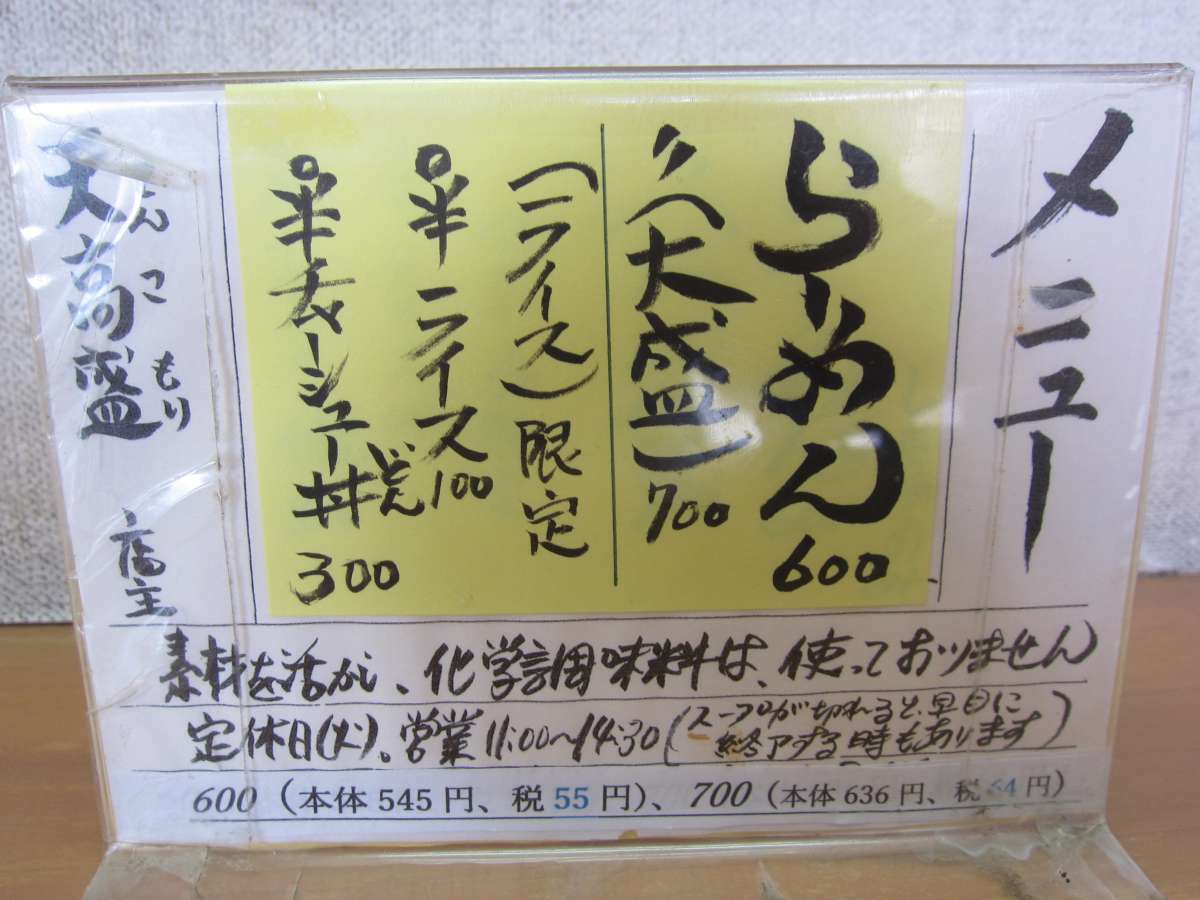 メニュー
らーめん 600
〃（大盛）700
（ライス）限定
半ライス 100
半チャーシュー丼 300
どん
天高盛 店主
てんこもり
素材を活かし、化学調味料は、使っておりません
定休日(火)。営業11:00～14:30(スープが切れると、早目に
終了する時もあります)
600（本体 545 円、税 55 円）、700（本体 636 円、税 64 円）